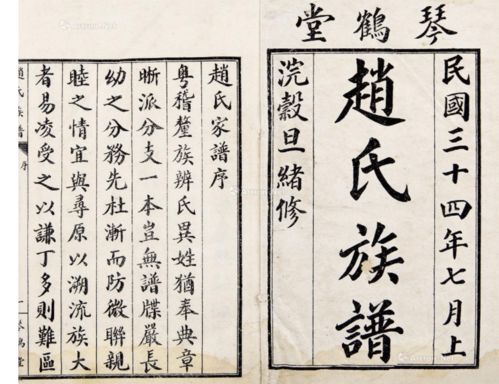 琴鶴堂
民國三十四年七月上
趙氏族譜
浣穀旦緒修
趙氏家譜序
粵稽釐族辨氏異姓猶奉典章
晰派分支一本豈無譜牒嚴長
幼之分務先杜漸而防微聯親
睦之情宜與尋原以溯流族大
者易凌受之以謙丁多則難區
趙氏族譜
序
一
琴鶴堂